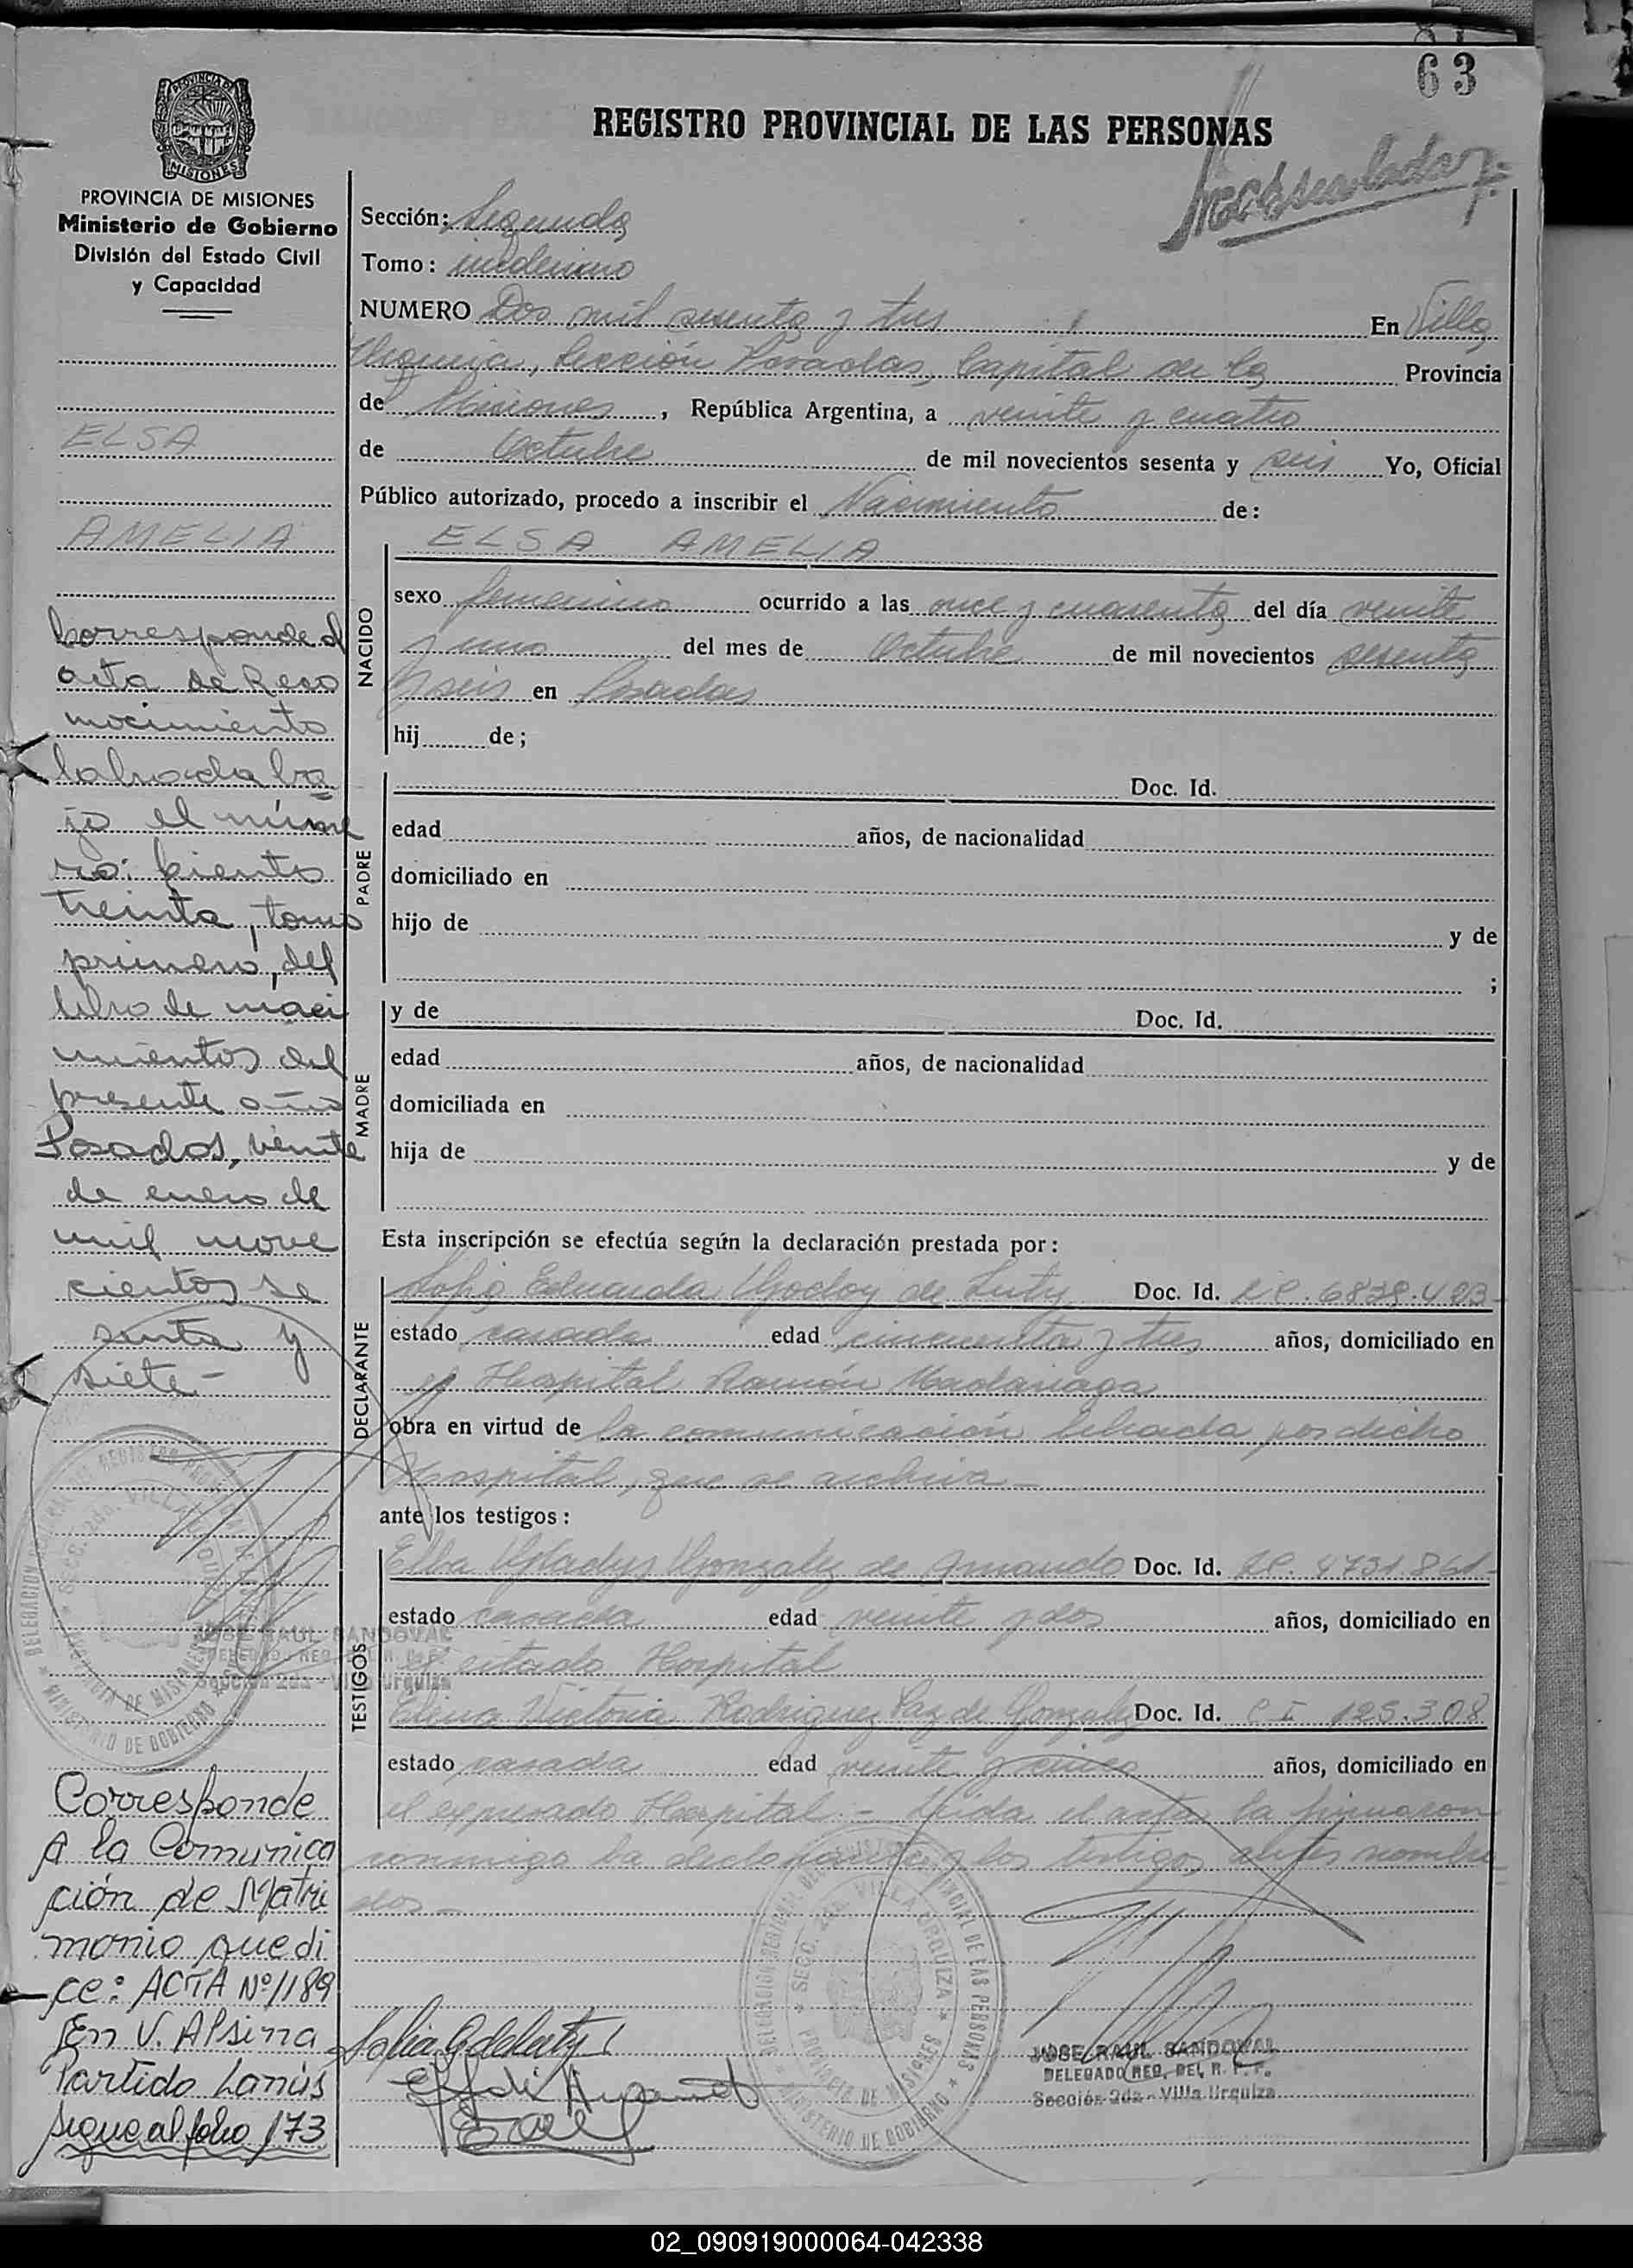 63
REGISTRO PROVINCIAL DE LAS PERSONAS
PROVINCIA DE
MISIONES
PROVINCIA DE MISIONES
Ministerio de Gobierno
División del Estado Civil
y Capacidad
Sección: Segunda
Tomo:
NUMERO Dos mil sesenta y tres En Villa
Urquiza, Sección Posadas, Capital de la Provincia
de Misiones, República Argentina, a veinte y cuatro
de Octubre de mil novecientos sesenta y seis Yo, Oficial
Público autorizado, procedo a inscribir el Nacimiento de:
ELSA AMELIA
NACIDO
sexo femenino ocurrido a las once y cuarenta del día veinte
y uno del mes de Octubre de mil novecientos sesenta
y seis en Posadas
hij de;
PADRE
Doc. Id.
edad años, de nacionalidad
domiciliado en
hijo de y de
;
MADRE
y de Doc. Id.
edad años, de nacionalidad
domiciliada en
hija de y de
Esta inscripción se efectúa según la declaración prestada por:
DECLARANTE
Eduarda Godoy de Luty Doc. Id.
estado casada edad cincuenta y tres años, domiciliado en
el Hospital Ramón Madariaga
obra en virtud de la comunicación librada por dicho
Hospital, que se archiva -
ante los testigos:
TESTIGOS
Elba Gladys Gonzalez de Amando Doc. Id. LC. 4731.861-
estado casada edad veinte y dos años, domiciliado en
citado Hospital
Elena Victoria Rodriguez Paz de Gonzalez Doc. Id. C I 125.308
estado casada edad veinte y cinco años, domiciliado en
el expresado Hospital - Leída el acta, la firmaron
conmigo la declarante y los testigos antes nombra
dos -
DELEGACION REGIONAL DEL REGISTRO PROVINCIAL DE LAS PERSONAS
SECC. 2da. VILLA URQUIZA
PROVINCIA DE MISIONES
MINISTERIO DE GOBIERNO
JOSE RAUL SANDOVAL
DELEGADO REG. DEL R. P. P.
Sección 2da - Villa Urquiza
ELSA
AMELIA
Corresponde al
acta de Reco
nocimiento
labrada ba
jo el núme
ro: ciento
treinta, tomo
primero, del
libro de naci
mientos del
presente año
Posadas, veinte
de enero de
mil nove
cientos se
senta y
siete -
DELEGACION REGIONAL DEL REGISTRO PROVINCIAL DE LAS PERSONAS
SECC. 2da. VILLA URQUIZA
PROVINCIA DE MISIONES
MINISTERIO DE GOBIERNO
JOSE RAUL SANDOVAL
DELEGADO REG. DEL R. P. P.
Sección 2da - Villa Urquiza
Corresponde
A la Comunica
ción de Matri
monio que di
ce: ACTA Nº 1189
En V. Alsina
Partido Lanús
sigue al folio 173
02_090919000064-042338